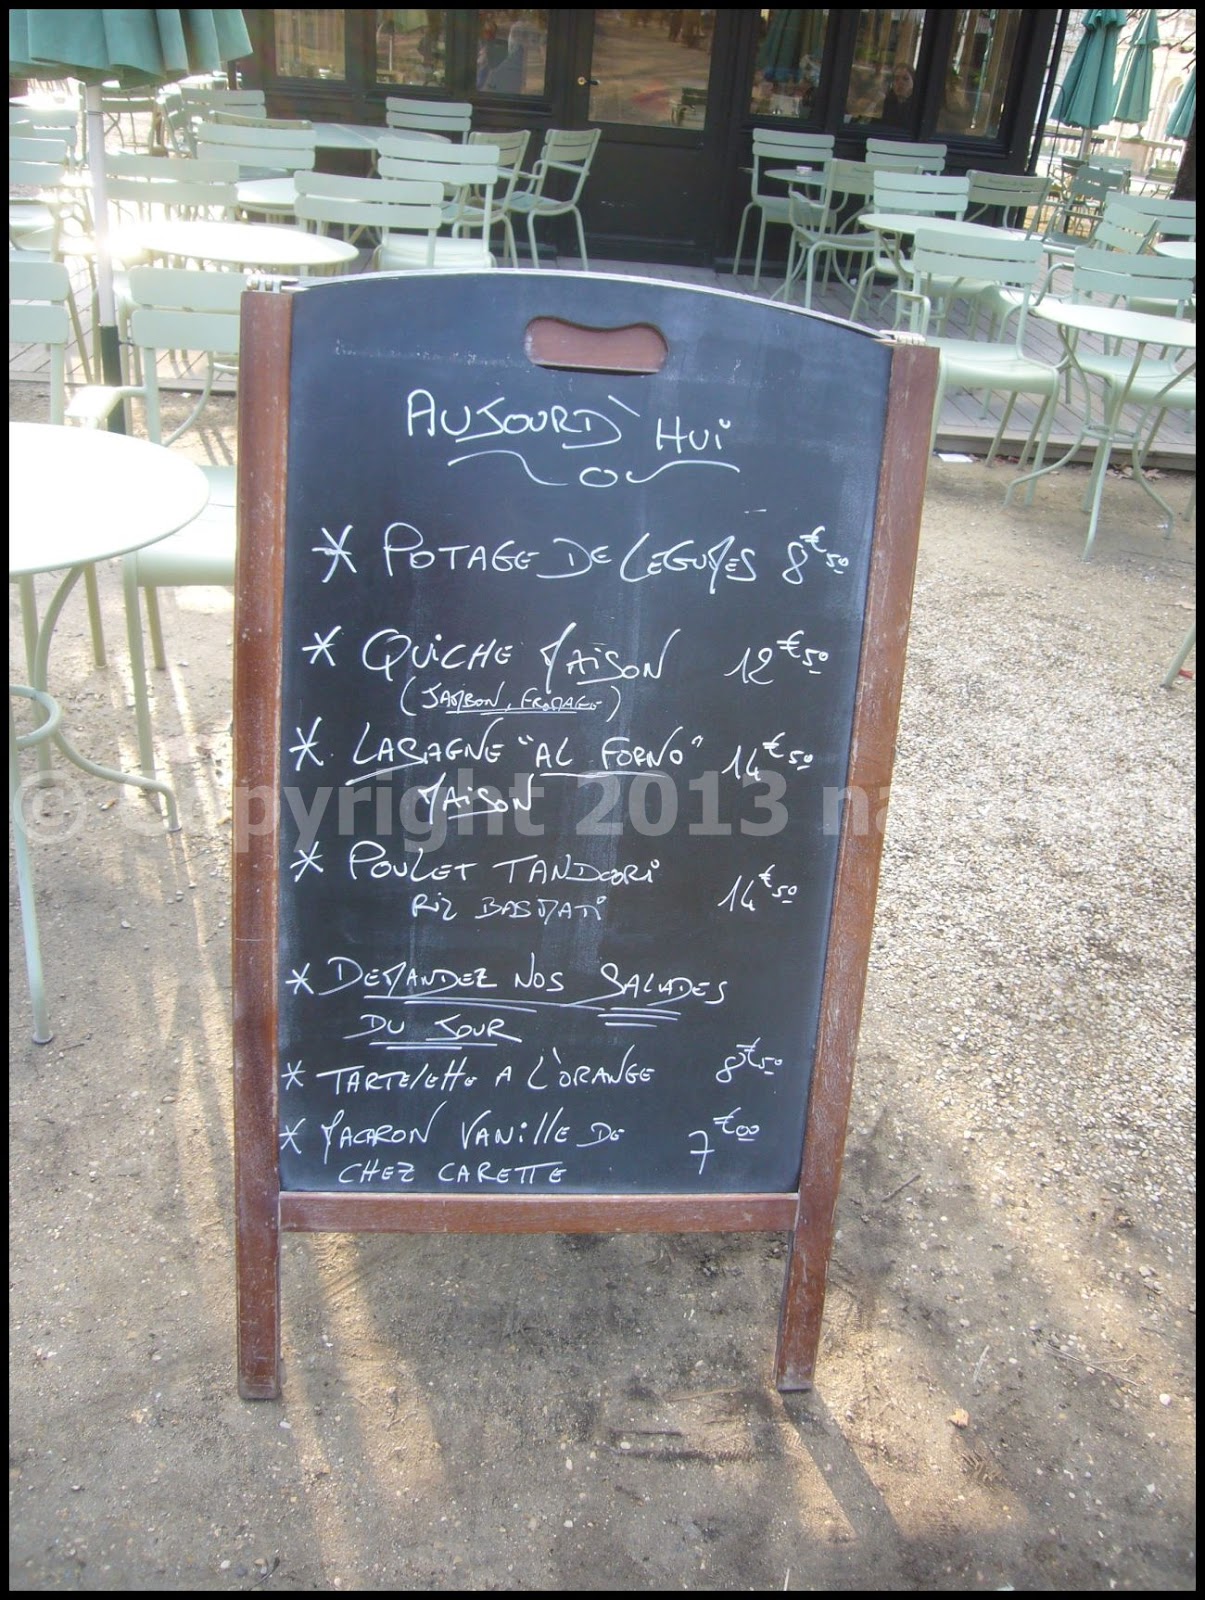 AUJOURD'HUI
* POTAGE DE LEGUMES 8€50
* QUICHE MAISON 12€50
(JAMBON, FROMAGE)
* LASAGNE "AL FORNO" 14€50
MAISON
© Copyright 2013
* POULET TANDOORI
RIZ BASMATI 14€50
* DEMANDEZ NOS SALADES
DU JOUR
* TARTELETTE A L'ORANGE 8€50
* MACARON VANILLE DE 7€00
CHEZ CARETTE